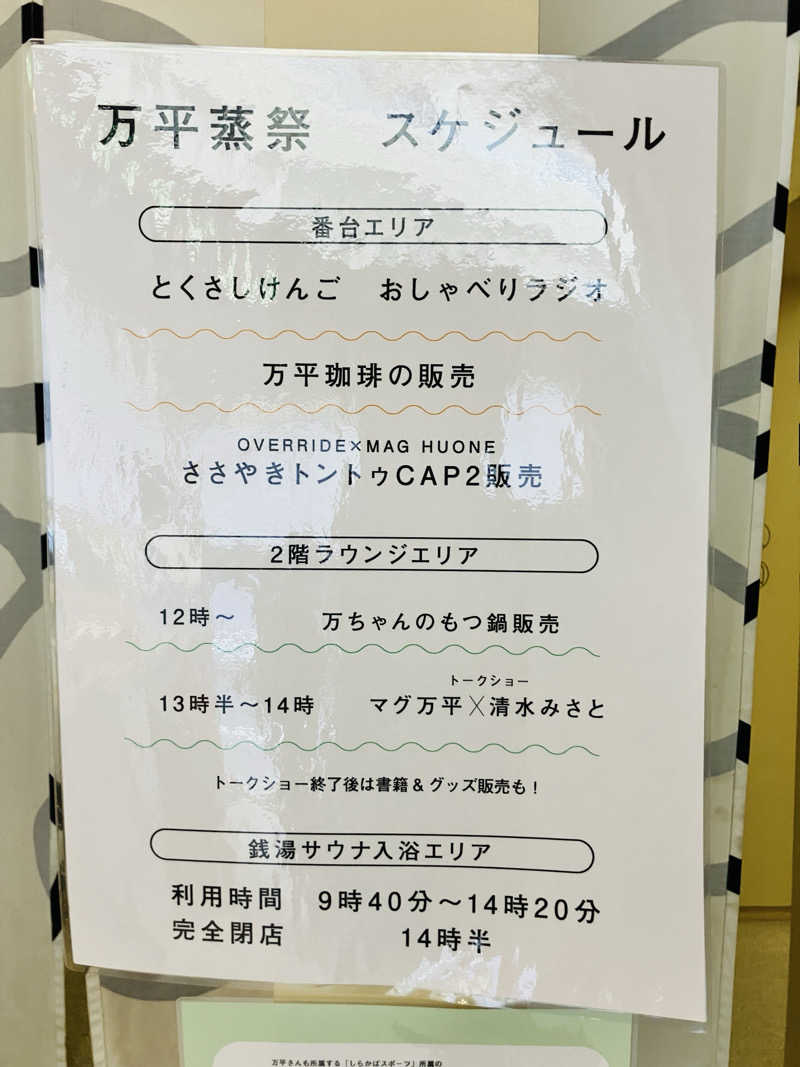 万平蒸祭　スケジュール
番台エリア
とくさしけんご　おしゃべりラジオ
万平珈琲の販売
OVERRIDE×MAG HUONE
ささやきトントゥCAP2販売
2階ラウンジエリア
12時～　万ちゃんのもつ鍋販売
トークショー
13時半～14時　マグ万平╳清水みさと
トークショー終了後は書籍&グッズ販売も！
銭湯サウナ入浴エリア
利用時間　9時40分～14時20分
完全閉店　14時半
万平さんも所属する「しらかばスポーツ」所属の